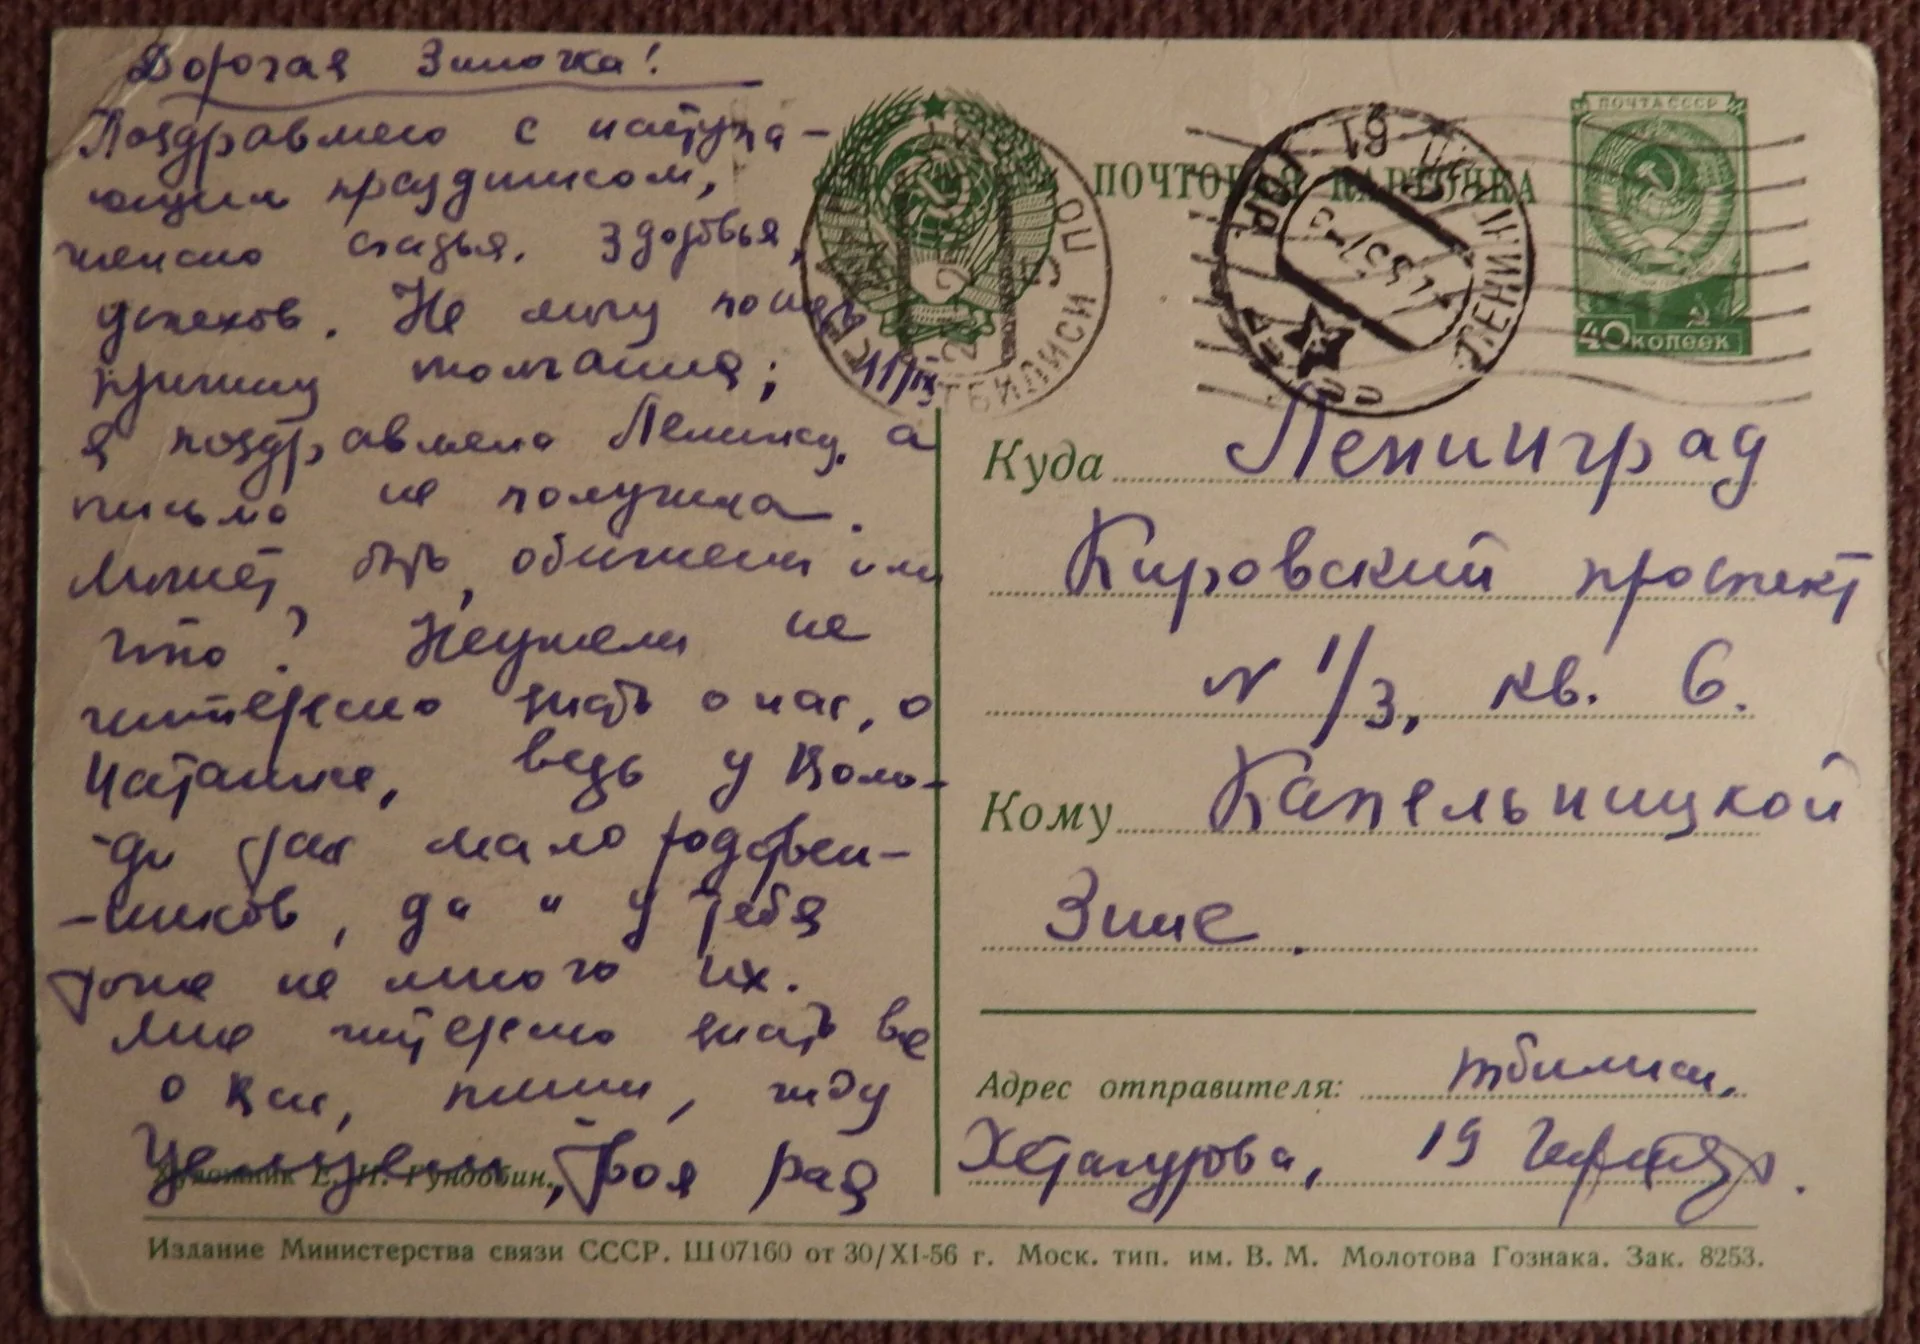 Дорогая Зиночка!
Поздравляю с наступа-
ющим праздником,
желаю счастья, здоровья,
успехов. Не могу понять
причину молчания;
я поздравляла Леничку, а
письма не получила.
Может быть, обижены или
что? Неужели не
интересно знать о нас, о
Наташке, ведь у Воло-
-ди так мало родствен-
-ников, да и у тебя
тоже не много их.
Мне интересно знать все
о Вас, пиши, жду
Целуем, Твоя Рая
Художник Е. Н. Гундобин.
ПОЧТОВАЯ КАРТОЧКА
ПОЧТА СССР
40 КОПЕЕК
ТБИЛИСИ
ЛЕНИНГРАД
Куда Ленинград
Кировский проспект
N 1/3, кв. 6.
Кому Капельницкой
Зине.
Адрес отправителя: Тбилиси,
Хетагурова, 19
Издание Министерства связи СССР. Ш 07160 от 30/XI-56 г. Моск. тип. им. В. М. Молотова Гознака. Зак. 8253.